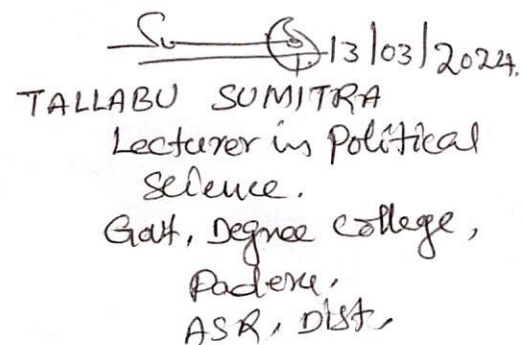 13/03/2024.
TALLABU SUMITRA
Lecturer in Political
Science.
Govt, Degree College,
Paderu,
ASR, Dist,